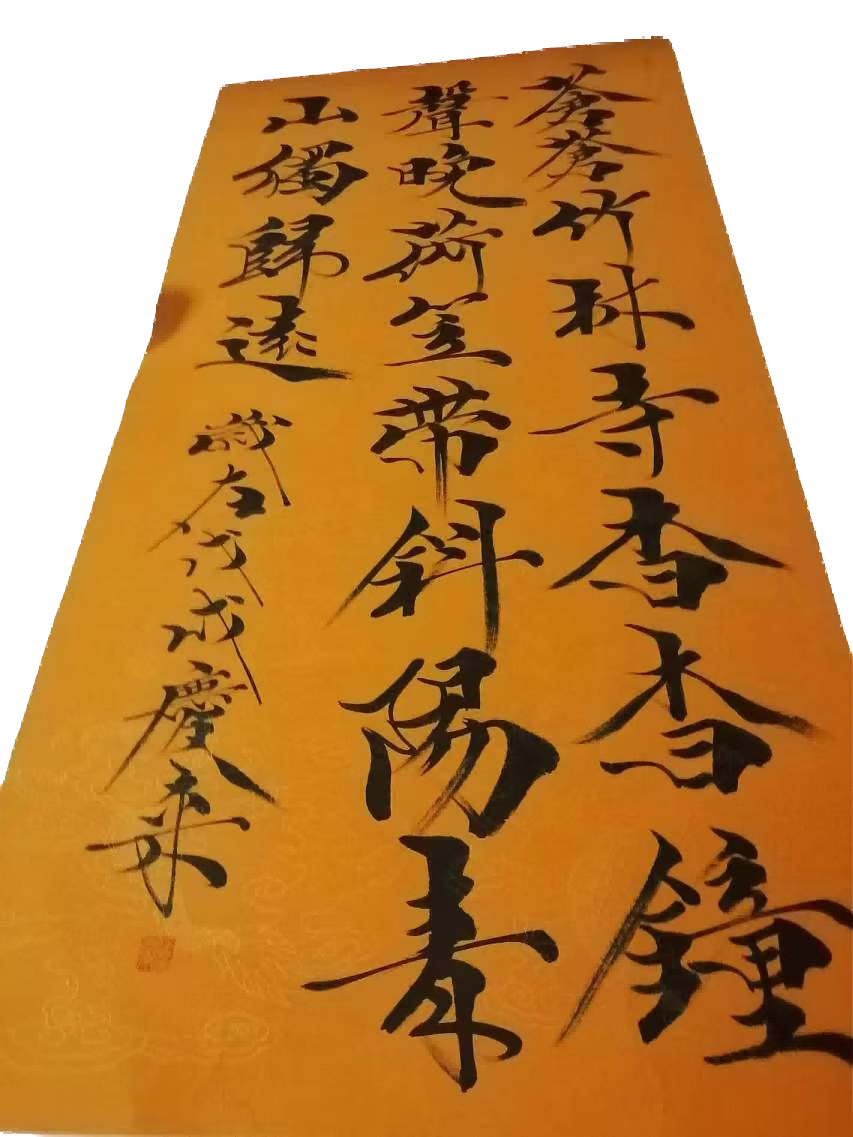 蒼蒼竹林寺杳杳鐘
聲晚荷笠帶斜陽青
山獨歸遠
歲在戊戌慶來